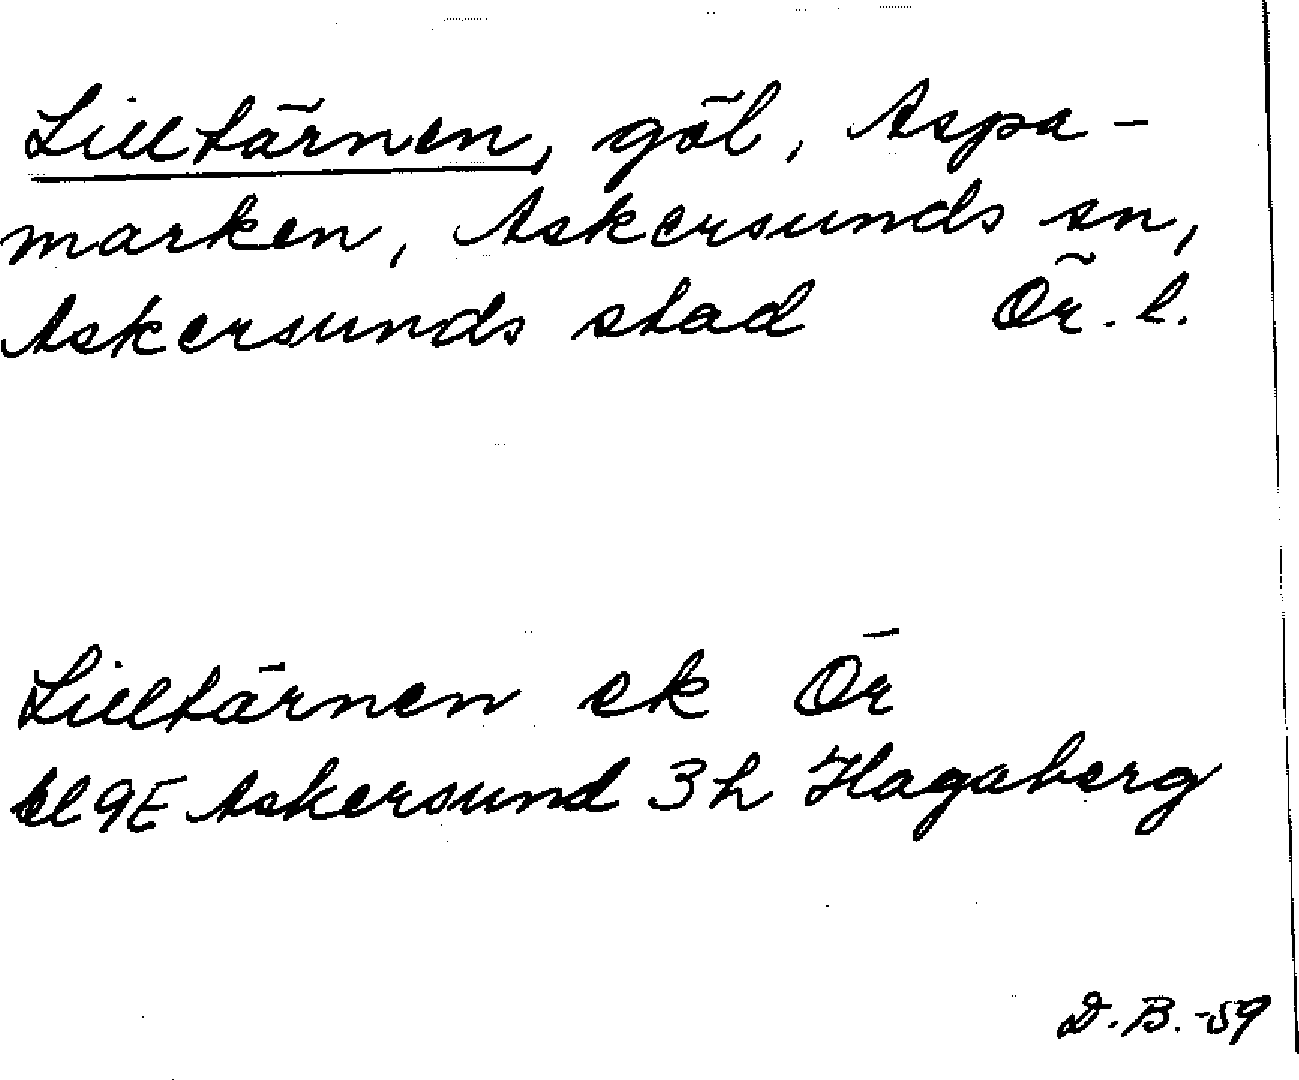 Lilltärnen, göl, Aspa-
marken, Askersunds sn,
Askersunds stad Ör. l.
Lilltärnen ek Ör
9E Askersund 3h Hagaberg
D.B.-59